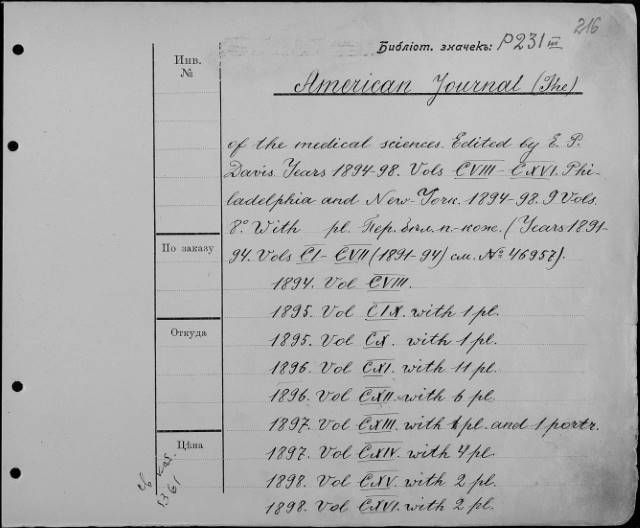 216
Библіот. значекъ: P231 III
Инв. №
American Journal (The)
of the medical sciences. Edited by E. P.
Davis. Years 1894-98. Vols CVIII-CXVI. Phi-
ladelphia and New-York. 1894-98. 9 Vols.
8° With pl. Пер. бѣл. п.-кож. (Years 1891-
94. Vols CI-CVII (1891-94) см. № 46957).
По заказу
1894. Vol CVIII.
1895. Vol CIX. with 1 pl.
1895. Vol CX. with 1 pl.
Откуда
1896. Vol CXI. with 11 pl.
1896. Vol CXII. with 6 pl.
1897. Vol CXIII. with 1 pl. and 1 portr.
Цѣна
1897. Vol CXIV. with 4 pl.
1898. Vol CXV. with 2 pl.
1898. Vol CXVI. with 2 pl.
1361